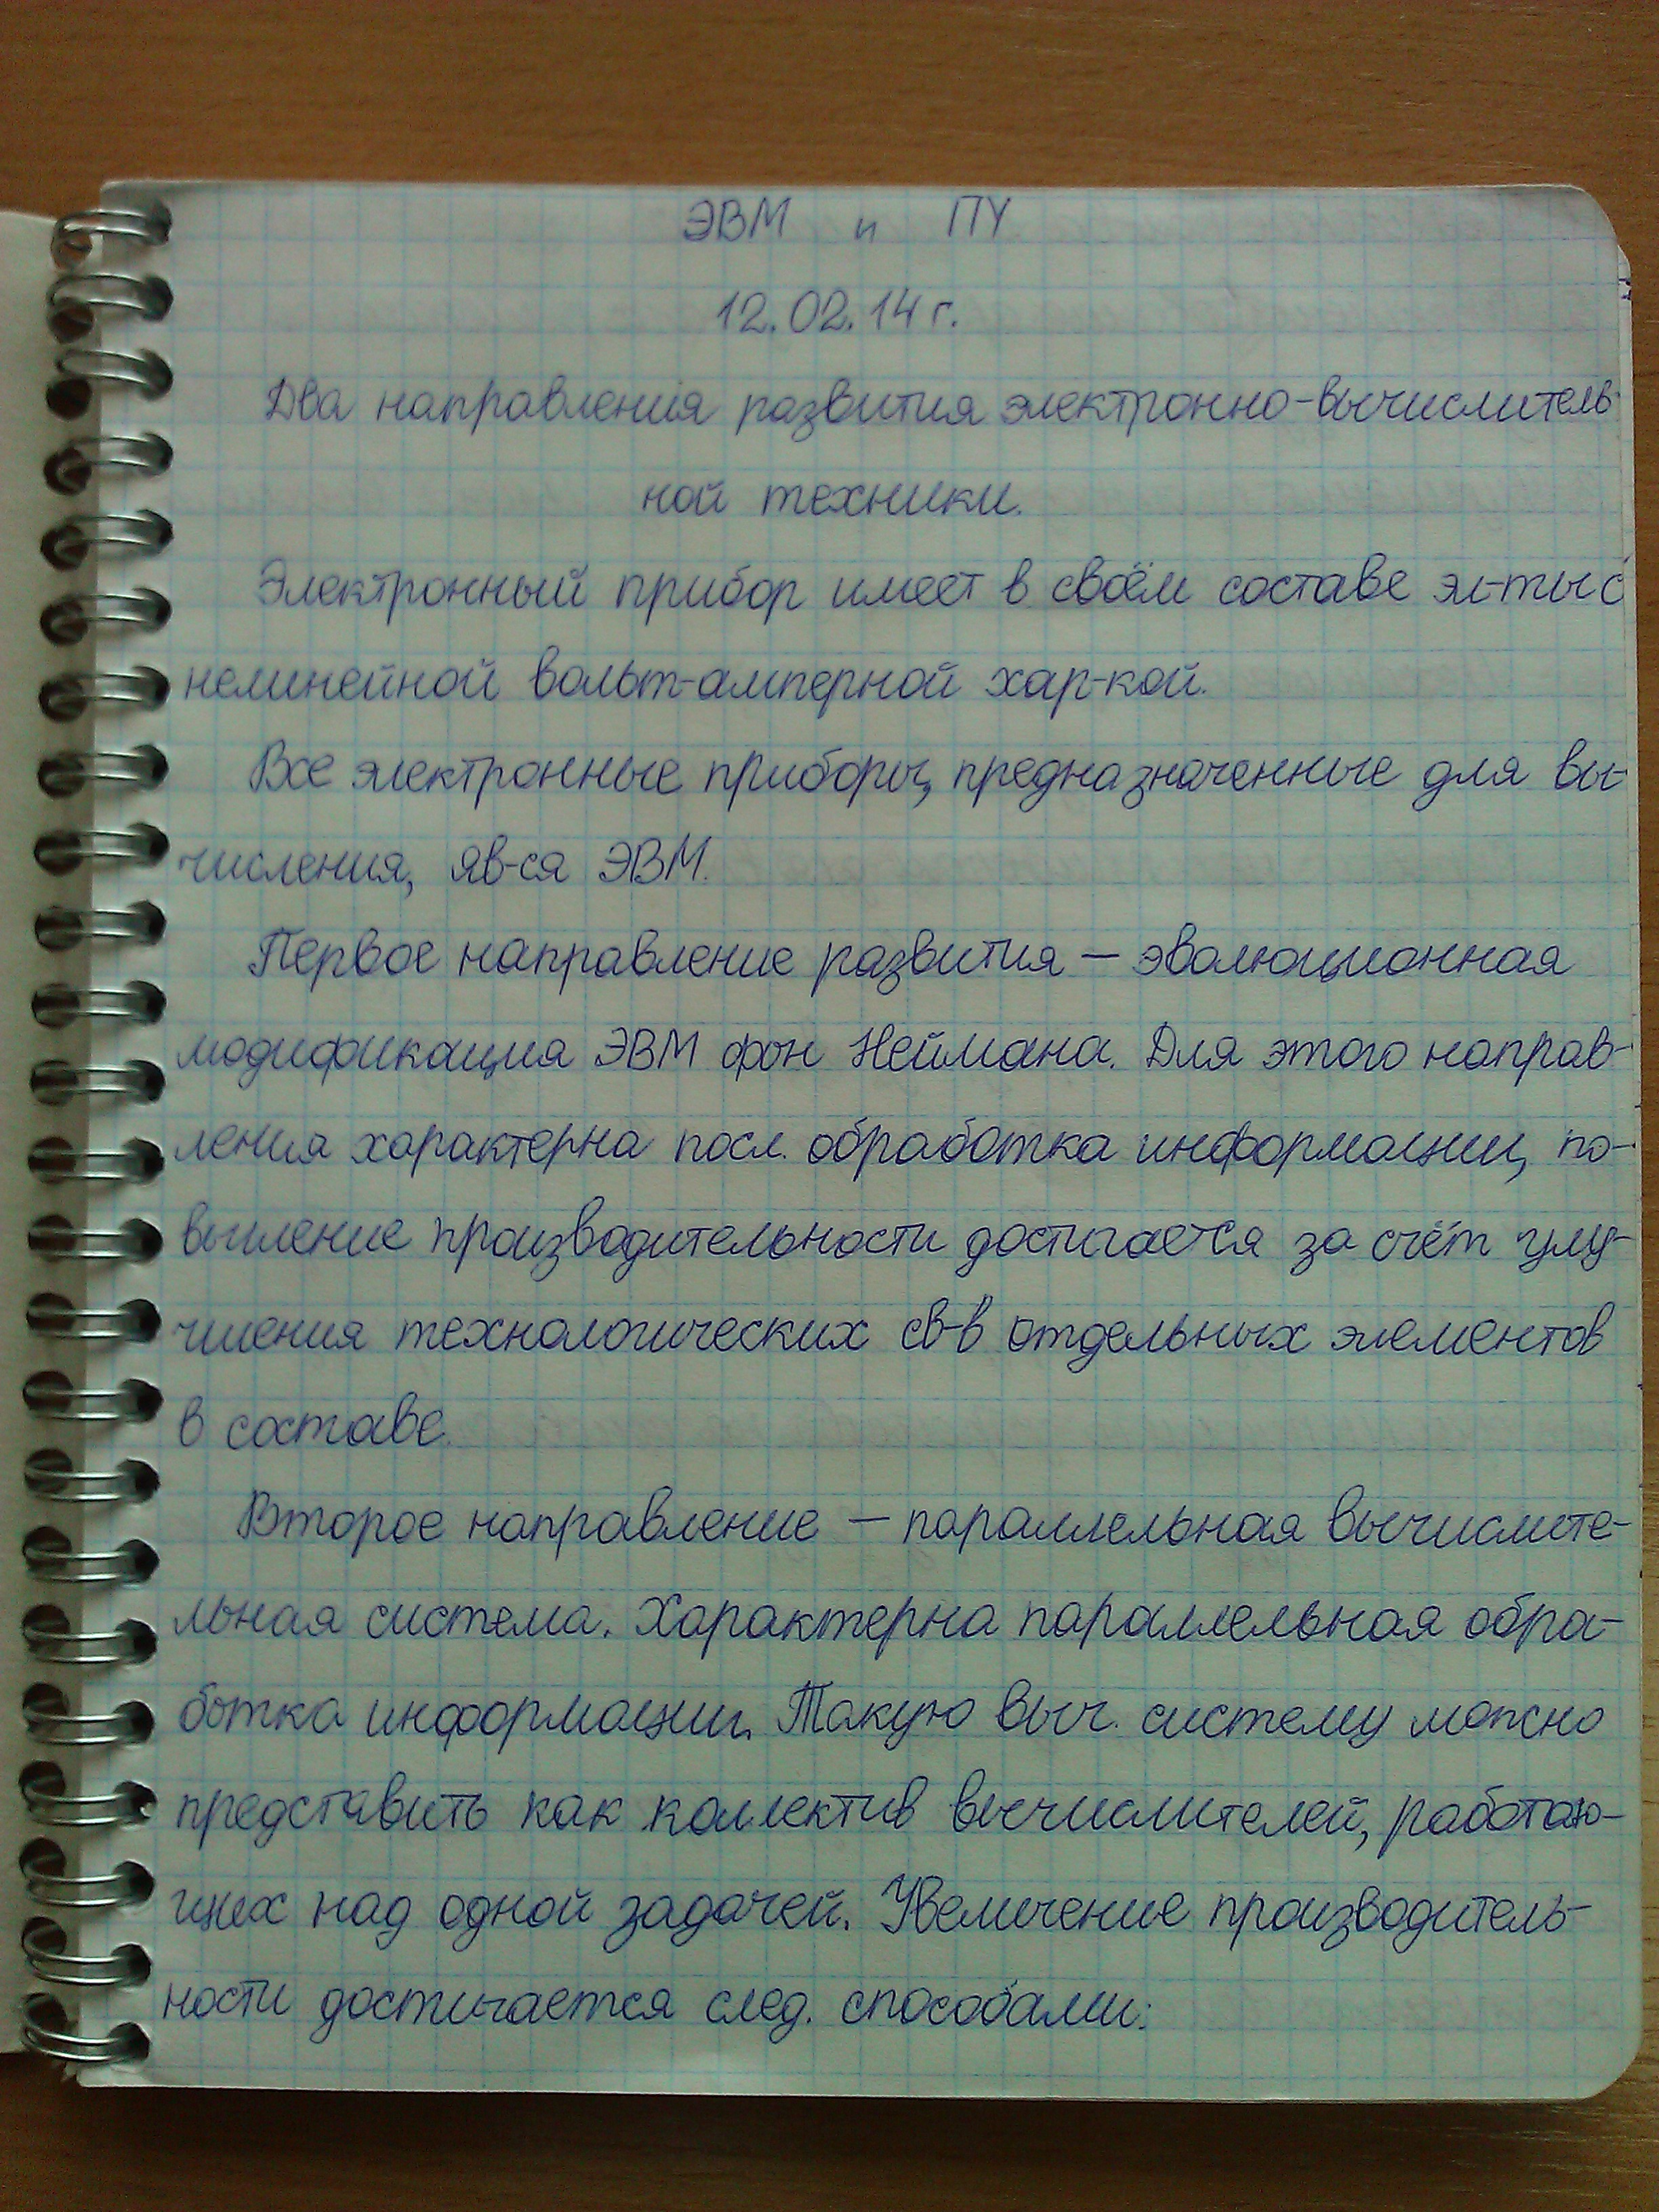 ЭВМ и ПУ
12.02.14 г.
Два направления развития электронно-вычислитель-
ной техники.
Электронный прибор имеет в своём составе эл-ты с
нелинейной вольт-амперной хар-кой.
Все электронные приборы, предназначенные для вы-
числения, яв-ся ЭВМ.
Первое направление развития — эволюционная
модификация ЭВМ фон Неймана. Для этого направ-
ления характерна посл. обработка информации, по-
вышение производительности достигается за счёт улу-
чшения технологических св-в отдельных элементов
в составе.
Второе направление — параллельная вычислите-
льная система. Характерна параллельная обра-
ботка информации. Такую выч. систему можно
представить как коллектив вычислителей, работаю-
щих над одной задачей. Увеличение производитель-
ности достигается след. способами: